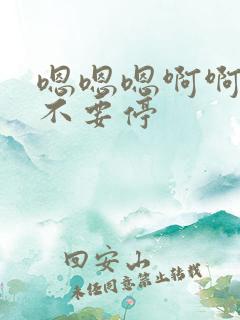 嗯嗯嗯啊啊
不要停
回安山
未经同意禁止转载